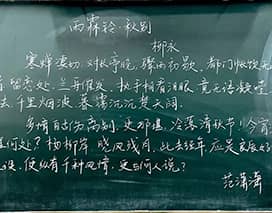 雨霖铃·秋别
柳永
寒蝉凄切,对长亭晚,骤雨初歇。都门帐饮无
留恋处,兰舟催发。执手相看泪眼,竟无语凝噎。
去千里烟波,暮霭沉沉楚天阔。
多情自古伤离别,更那堪,冷落清秋节,今宵
何处?杨柳岸,晓风残月。此去经年,应是良辰好
设。便纵有千种风情,更与何人说?
范潇潇